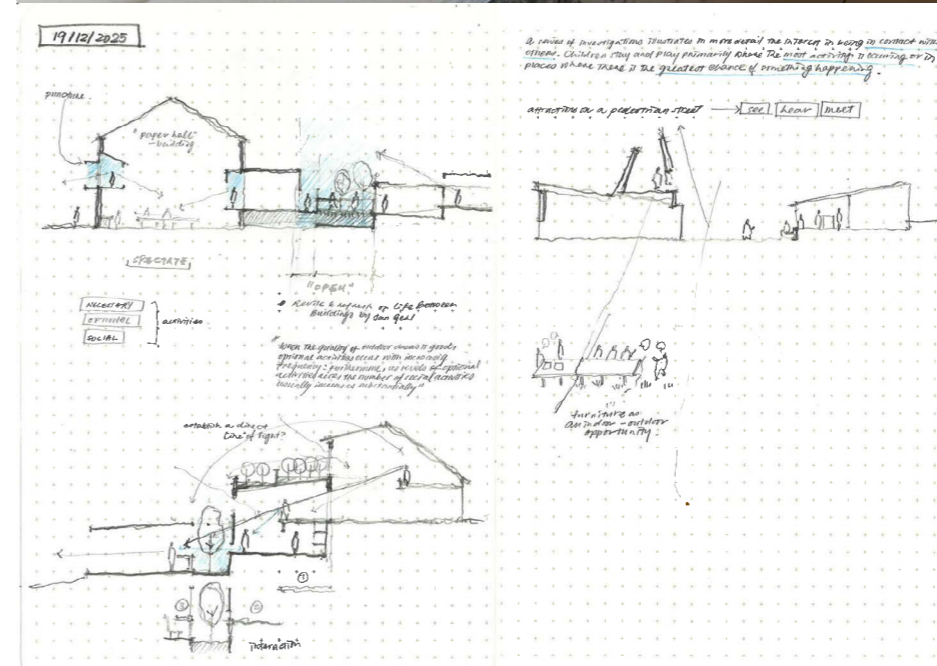 19/12/2025
puncture
"paper hall"
- building
SPECTATE
"OPEN"
NECESSARY
OPTIONAL
SOCIAL
activities
Revise & refresh on Life Between
Buildings by Jan Gehl
"When the quality of outdoor areas is good,
optional activities occur with increasing
frequency. Furthermore, as levels of optional
activities rises the number of social activities
usually increases substantially"
establish a direct
line of sight?
1
3
2
interaction
a series of investigations illustrates in more detail the interest in being in contact with
others. Children stay and play primarily where the most activity is occuring or in
places where there is the greatest chance of something happening.
attractions on a pedestrian street → see hear meet
furniture as
an indoor - outdoor
opportunity.